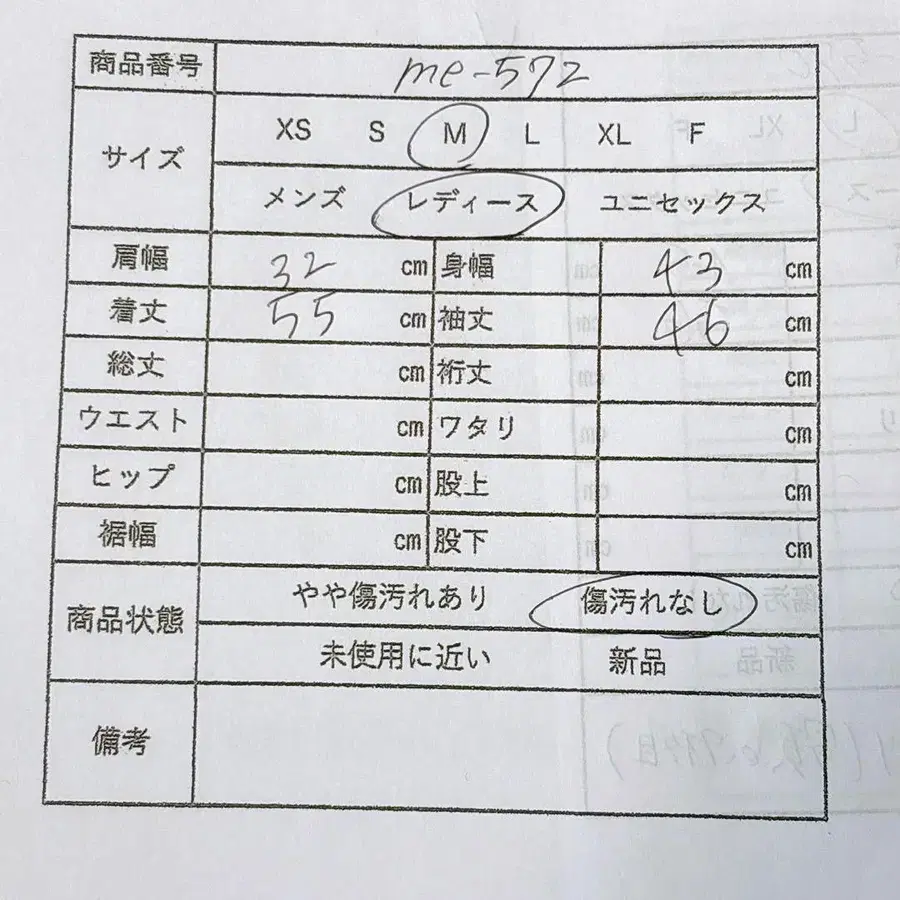 商品番号 me-572
サイズ XS S M L XL F
メンズ レディース ユニセックス
肩幅 32 cm 身幅 43 cm
着丈 55 cm 袖丈 46 cm
総丈 cm 裄丈 cm
ウエスト cm ワタリ cm
ヒップ cm 股上 cm
裾幅 cm 股下 cm
商品状態 やや傷汚れあり 傷汚れなし
未使用に近い 新品
備考